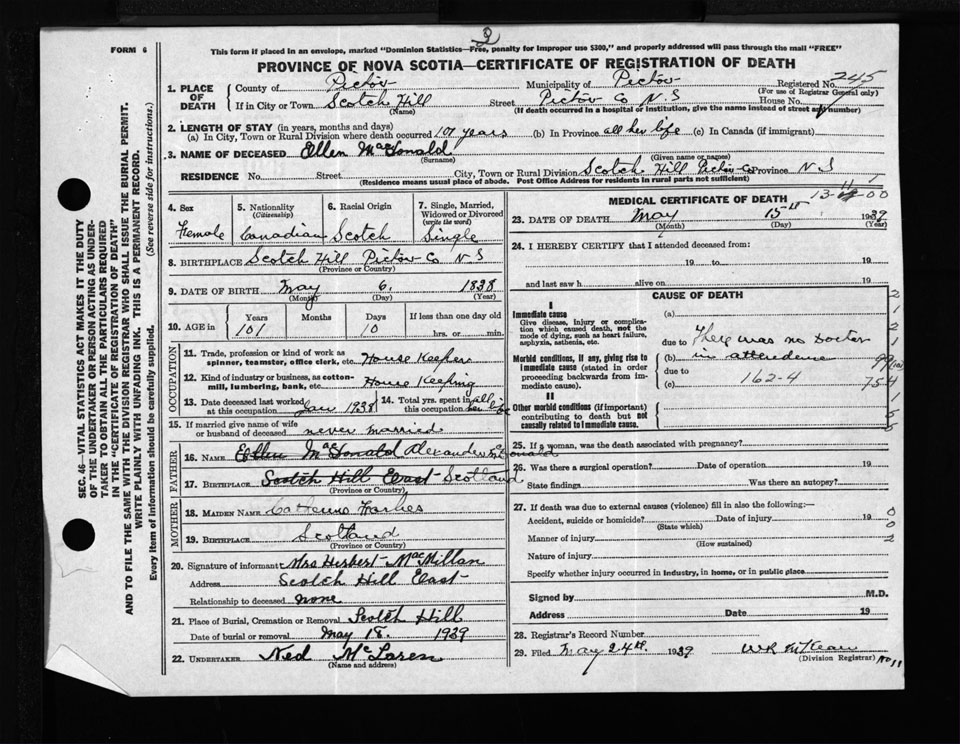 2
FORM 6
This form if placed in an envelope, marked "Dominion Statistics—Free, penalty for improper use $300," and properly addressed will pass through the mail "FREE"
PROVINCE OF NOVA SCOTIA—CERTIFICATE OF REGISTRATION OF DEATH
1. PLACE OF DEATH
County of Pictou Municipality of Pictou Registered No. 245
(For use of Registrar General only)
If in City or Town Scotch Hill Street Pictou Co N.S House No.
(Name) (If death occurred in a hospital or institution, give the name instead of street and number)
2. LENGTH OF STAY (in years, months and days)
(a) In City, Town or Rural Division where death occurred 101 years (b) In Province all her life (c) In Canada (if immigrant)
3. NAME OF DECEASED Ellen MacDonald
(Surname) (Given name or names)
RESIDENCE No. Street City, Town or Rural Division Scotch Hill Pictou Co Province N S
(Residence means usual place of abode. Post Office Address for residents in rural parts not sufficient)
4. Sex
Female
5. Nationality
(Citizenship)
Canadian
6. Racial Origin
Scotch
7. Single, Married, Widowed or Divorced
(write the word)
Single
8. BIRTHPLACE Scotch Hill Pictou Co N S
(Province or Country)
9. DATE OF BIRTH May 6. 1838
(Month) (Day) (Year)
10. AGE in Years Months Days If less than one day old
101 10 hrs. or min.
OCCUPATION
11. Trade, profession or kind of work as spinner, teamster, office clerk, etc. House Keeper
12. Kind of industry or business, as cotton-mill, lumbering, bank, etc. House Keeping
13. Date deceased last worked at this occupation Jan 1938
14. Total yrs. spent in this occupation all her life
15. If married give name of wife or husband of deceased never married
FATHER
16. NAME Ellen MacDonald Alexander McDonald
17. BIRTHPLACE Scotch Hill East Scotland
(Province or Country)
MOTHER
18. MAIDEN NAME Catherine Forbes
19. BIRTHPLACE Scotland
(Province or Country)
20. Signature of informant Mrs Herbert MacMillan
Address Scotch Hill East
Relationship to deceased none
21. Place of Burial, Cremation or Removal Scotch Hill
Date of burial or removal May 18. 1939
22. UNDERTAKER Ned McLaren
(Name and address)
13-11-00
MEDICAL CERTIFICATE OF DEATH
23. DATE OF DEATH May 15th 1939
(Month) (Day) (Year)
24. I HEREBY CERTIFY that I attended deceased from:
19 to 19
and last saw h alive on 19
CAUSE OF DEATH
I
Immediate cause
Give disease, injury or complication which caused death, not the mode of dying, such as heart failure, asphyxia, asthenia, etc.
Morbid conditions, if any, giving rise to immediate cause (stated in order proceeding backwards from immediate cause).
II
Other morbid conditions (if important) contributing to death but not causally related to immediate cause.
(a)
due to There was no Doctor
(b) in attendence
due to
(c) 162-4
25. If a woman, was the death associated with pregnancy?
26. Was there a surgical operation? Date of operation 19
State findings Was there an autopsy?
27. If death was due to external causes (violence) fill in also the following:
Accident, suicide or homicide? Date of injury 19
(State which)
Manner of injury
(How sustained)
Nature of injury
Specify whether injury occurred in industry, in home, or in public place
Signed by M.D.
Address Date 19
28. Registrar's Record Number
29. Filed May 24th 1939
(Division Registrar)
SEC. 46—VITAL STATISTICS ACT MAKES IT THE DUTY
OF THE UNDERTAKER OR PERSON ACTING AS UNDER-
TAKER TO OBTAIN ALL THE PARTICULARS REQUIRED
IN THE "CERTIFICATE OF REGISTRATION OF DEATH"
AND TO FILE THE SAME WITH THE DIVISION REGISTRAR WHO SHALL ISSUE THE BURIAL PERMIT.
WRITE PLAINLY WITH UNFADING INK. THIS IS A PERMANENT RECORD.
Every item of information should be carefully supplied. (See reverse side for instructions.)